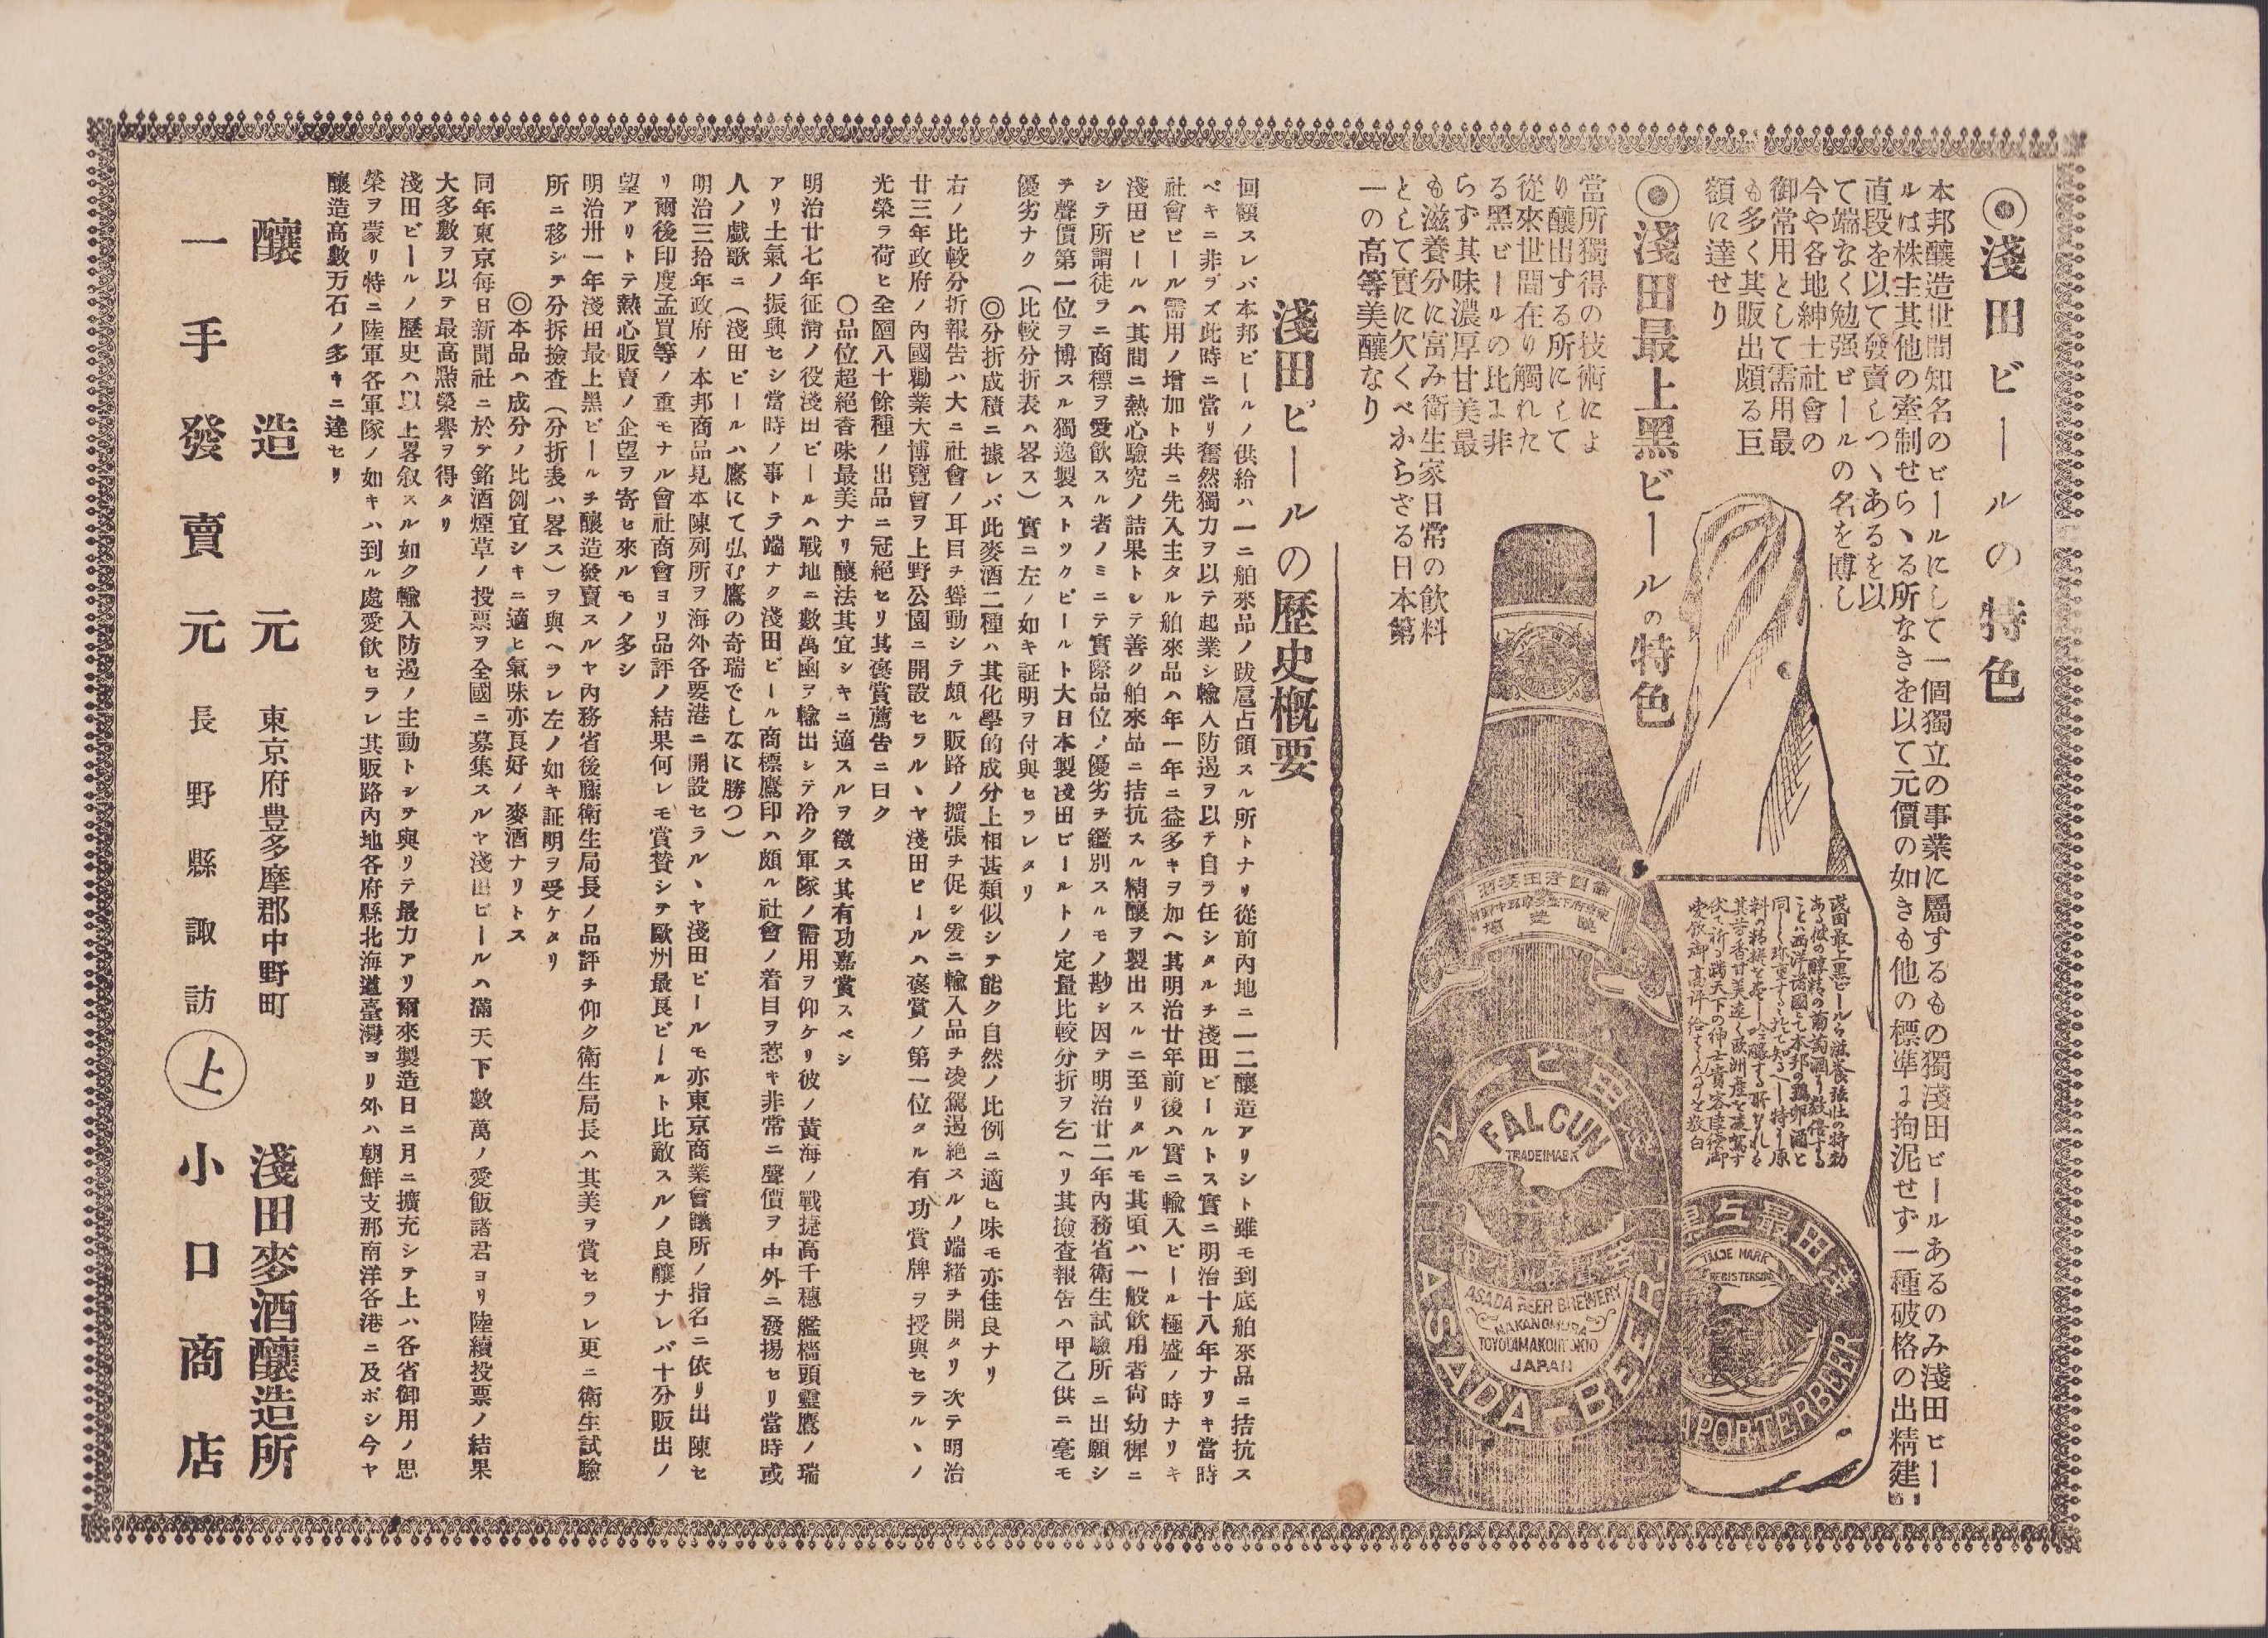 ◎淺田ビールの特色
本邦釀造世間知名のビールにして一個獨立の事業に屬するもの獨淺田ビールあるのみ淺田ビー
ルは株主其他の牽制せらヽる所なきを以て元價の如きも他の標準に拘泥せず一種破格の出精建
直段を以て發賣しつヽあるを以
て端なく勉强ビールの名を博し
今や各地紳士社會の
御常用として需用最
も多く其販出頗る巨
額に達せり
◎淺田最上黑ビールの特色
當所獨得の技術によ
り釀出する所にして
從來世間在り觸れた
る黑ビールの比に非
らず其味濃厚甘美最
も滋養分に富み衛生家日常の飲料
として實に欠くべからざる日本第
一の高等美釀なり
FALCUN
TRADEMARK
ASADA BEER BREWERY
NAKANOMURA
JAPAN
ASADA-BEER
TRADE MARK
REGISTERED
PORTERBEER
淺田ビールの歷史概要
回顧スレバ本邦ビールノ供給ハ一ニ舶來品ノ跋扈占領スル所トナリ從前內地ニ一二釀造アリシト雖モ到底舶來品ニ拮抗ス
ベキニ非ラズ此時ニ當リ奮然獨力ヲ以テ起業シ輸入防遏ヲ以テ自ラ任シタルヲ淺田ビールトス實ニ明治十八年ナリキ當時
社會ビール需用ノ增加ト共ニ先入主タル舶來品ハ年一年ニ益多キヲ加ヘ其明治廿年前後ハ實ニ輸入ビール極盛ノ時ナリキ
淺田ビールハ其間ニ熱心驗究ノ詰果トシテ善ク舶來品ニ拮抗スル精釀ヲ製出スルニ至リタルモ其頃ハ一般飲用者尙幼穉ニ
シテ所謂徒ラニ商標ヲ愛飲スル者ノミニテ實際品位ノ優劣ヲ鑑別スルモノ尠シ因テ明治廿二年內務省衛生試驗所ニ出願シ
テ聲價第一位ヲ博スル獨逸製ストツクビールト大日本製淺田ビールトノ定量比較分折ヲ乞ヘリ其撿査報告ハ甲乙供ニ毫モ
優劣ナク(比較分折表ハ畧ス)實ニ左ノ如キ証明ヲ付與セラレタリ
◎分折成積ニ據レバ此麥酒二種ハ其化學的成分上相甚類似シテ能ク自然ノ比例ニ適ヒ味モ亦佳良ナリ
右ノ比較分折報告ハ大ニ社會ノ耳目ヲ聳動シテ頗ル販路ノ擴張ヲ促シ爰ニ輸入品ヲ凌駕遏絕スルノ端緒ヲ開タリ次テ明治
廿三年政府ノ內國勸業大博覽會ヲ上野公園ニ開設セラルヽヤ淺田ビールハ褒賞ノ第一位タル有功賞牌ヲ授與セラルヽノ
光榮ヲ荷ヒ全國八十餘種ノ出品ニ冠絕セリ其褒賞薦告ニ曰ク
〇品位超絕香味最美ナリ釀法其宜シキニ適スルヲ徵ス其有功嘉賞スベシ
明治廿七年征淸ノ役淺田ビールハ戰地ニ數萬函ヲ輸出シテ冷ク軍隊ノ需用ヲ仰ケリ彼ノ黃海ノ戰捷高千穗艦檣頭靈鷹ノ瑞
アリ士氣ノ振興セシ當時ノ事トテ端ナク淺田ビール商標鷹印ハ頗ル社會ノ着目ヲ惹キ非常ニ聲價ヲ中外ニ發揚セリ當時或
人ノ戲歌ニ(淺田ビールハ鷹にて弘む鷹の奇瑞でしなに勝つ)
明治三拾年政府ノ本邦商品見本陳列所ヲ海外各要港ニ開設セラルヽヤ淺田ビールモ亦東京商業會議所ノ指名ニ依リ出陳セ
リ爾後印度孟買等ノ重モナル會社商會ヨリ品評ノ結果何レモ賞賛シテ歐州最良ビールト比敵スルノ良釀ナレバ十分販出ノ
望アリトテ熱心販賣ノ企望ヲ寄セ來ルモノ多シ
明治卅一年淺田最上黑ビールヲ釀造發賣スルヤ內務省後藤衛生局長ノ品評ヲ仰ク衛生局長ハ其美ヲ賞セラレ更ニ衛生試驗
所ニ移シテ分拆撿査(分折表ハ畧ス)ヲ與ヘラレ左ノ如キ証明ヲ受ケタリ
◎本品ハ成分ノ比例宜シキニ適ヒ氣味亦良好ノ麥酒ナリトス
同年東京每日新聞社ニ於テ銘酒煙草ノ投票ヲ全國ニ募集スルヤ淺田ビールハ滿天下數萬ノ愛飯諸君ヨリ陸續投票ノ結果
大多數ヲ以テ最高㷼榮譽ヲ得タリ
淺田ビールノ歷史ハ以上畧叙スル如ク輸入防遏ノ主動トシテ與リテ最力アリ爾來製造日ニ月ニ擴充シテ上ハ各省御用ノ思
榮ヲ蒙リ特ニ陸軍各軍隊ノ如キハ到ル處愛飲セラレ其販路內地各府縣北海道臺灣ヨリ外ハ朝鮮支那南洋各港ニ及ボシ今ヤ
釀造高數万石ノ多キニ達セリ
釀造元 東京府豊多摩郡中野町 淺田麥酒釀造所
一手發賣元 長野縣諏訪 上 小口商店